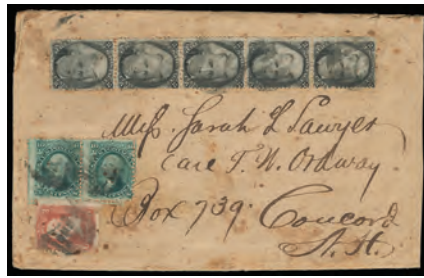 Miss. Sarah L Sawyer
Care T. W. Ordway
Box 739. Concord
N. H.